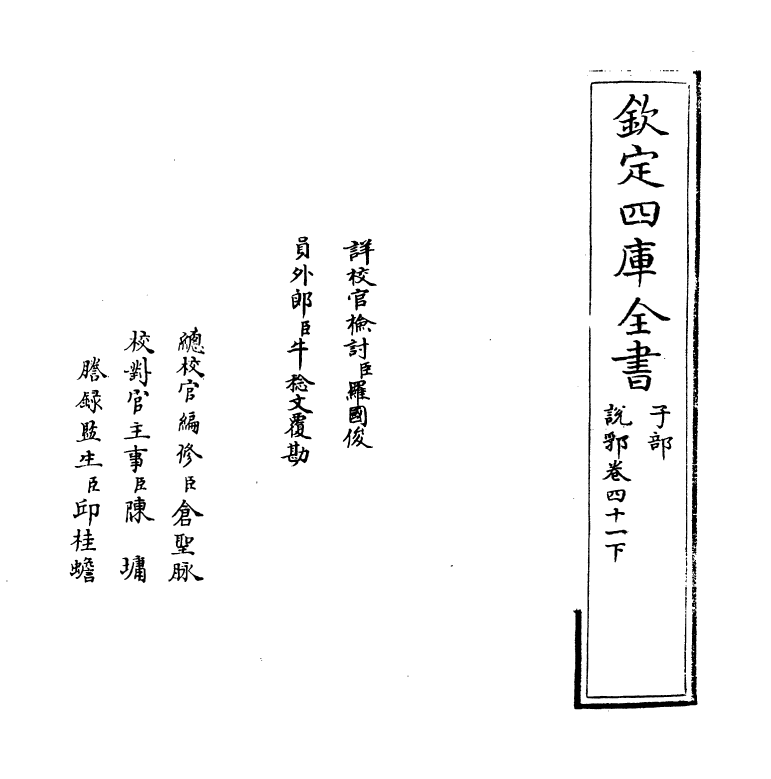 欽定四庫全書
子部
說郛卷四十一下
詳校官檢討臣羅國俊
員外郎臣牛稔文覆勘
總校官編修臣倉聖脉
校對官主事臣陳墉
謄録監生臣邱桂蟾